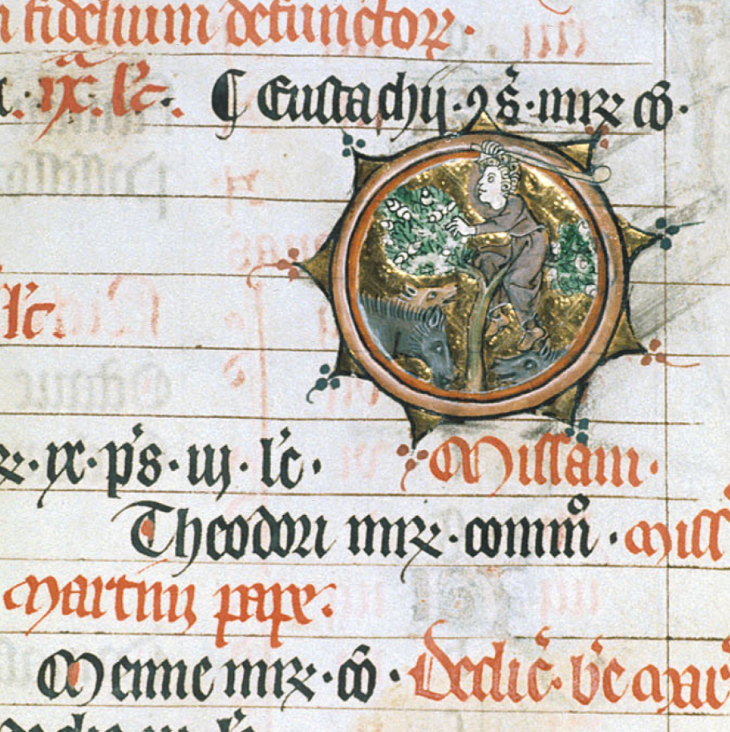 fidelium defunctoꝝ.
.ix. lc̄. ¶ Eustachij. ⁊ s̄. mrꝝ cō.
lc̄.
ix. ps̄. iij. lc̄. Missam.
Theodori mrꝝ. commō. Miss
Martini pape.
Menne mrꝝ. cō. Dedic̄. bē mar